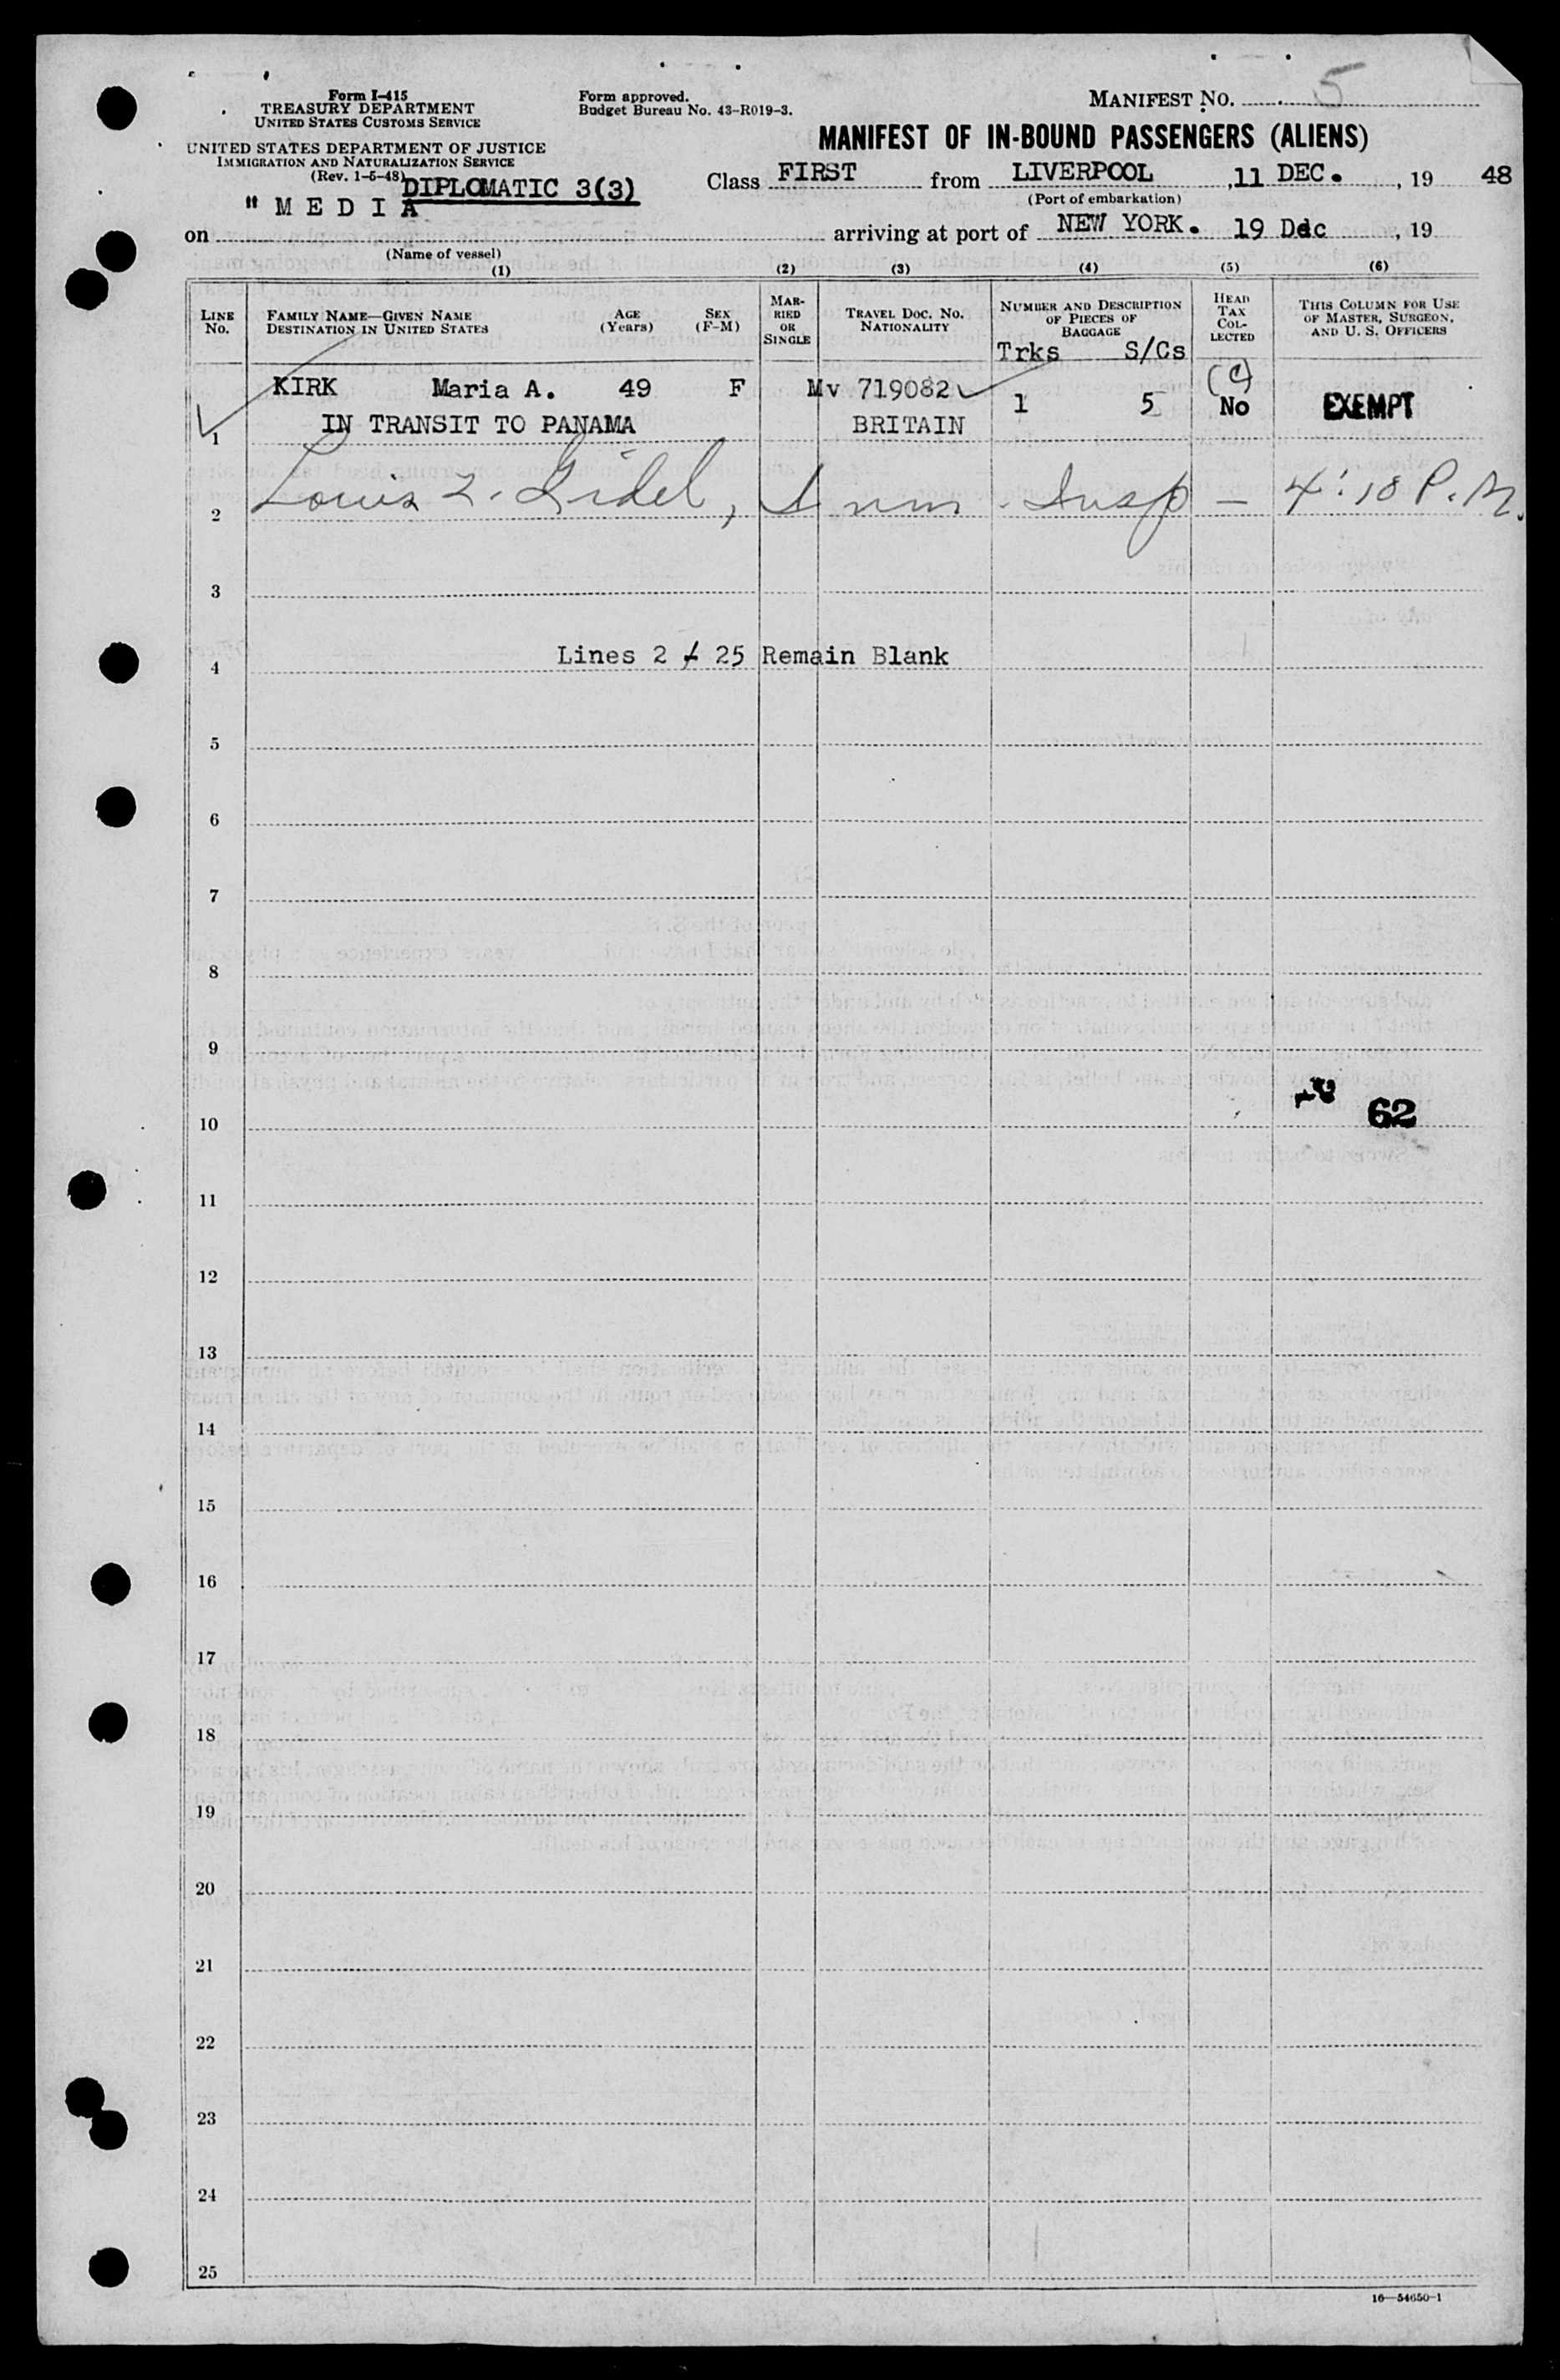 Form I-415
TREASURY DEPARTMENT
UNITED STATES CUSTOMS SERVICE
UNITED STATES DEPARTMENT OF JUSTICE
IMMIGRATION AND NATURALIZATION SERVICE
(Rev. 1-5-48)
Form approved.
Budget Bureau No. 43-R019-3.
MANIFEST NO. 5
MANIFEST OF IN-BOUND PASSENGERS (ALIENS)
DIPLOMATIC 3(3)
Class FIRST from LIVERPOOL, 11 DEC., 19 48
(Port of embarkation)
on "MEDIA arriving at port of NEW YORK. 19 Dec, 19
(Name of vessel)
(1) (2) (3) (4) (5) (6)
LINE No.
FAMILY NAME—GIVEN NAME
DESTINATION IN UNITED STATES
AGE (Years)
SEX (F-M)
MARRIED OR SINGLE
TRAVEL DOC. NO.
NATIONALITY
NUMBER AND DESCRIPTION
OF PIECES OF
BAGGAGE
Trks S/Cs
HEAD TAX COLLECTED
THIS COLUMN FOR USE
OF MASTER, SURGEON,
AND U. S. OFFICERS
KIRK Maria A. 49 F M v 719082 1 5 No EXEMPT
1 IN TRANSIT TO PANAMA BRITAIN
2 Louis Imm. Insp — 4:18 P.M.
3
4 Lines 2 - 25 Remain Blank
5
6
7
8
9
10 62
11
12
13
14
15
16
17
18
19
20
21
22
23
24
25
16—54650-1